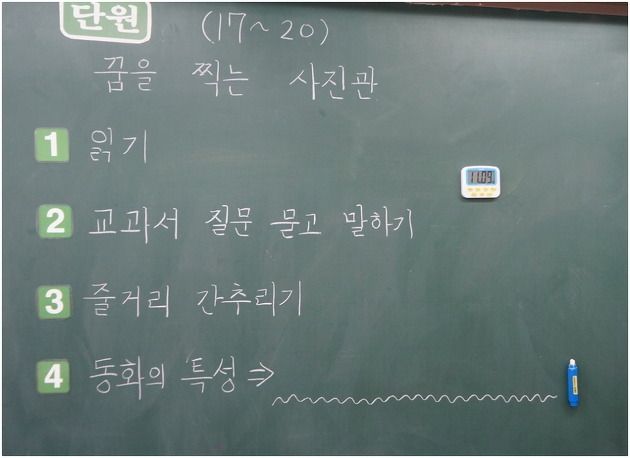 단원 (17~20)
꿈을 찍는 사진관
1 읽기
11.09
2 교과서 질문 묻고 말하기
3 줄거리 간추리기
4 동화의 특성 ⇒